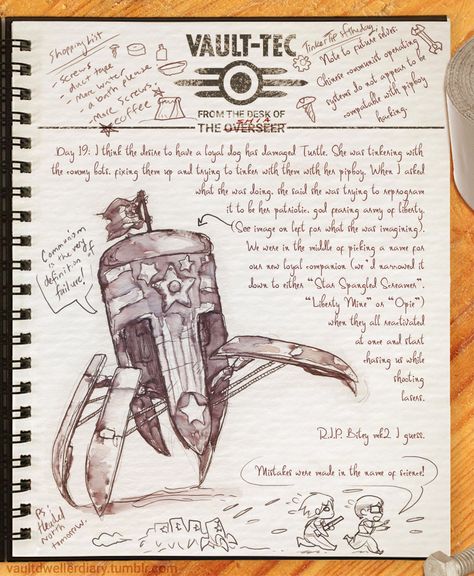 Shopping List
- screws
- duct tape
- More water
- a north
- More Screws.
- coffee
VAULT-TEC
FROM THE DESK OF
THE OVERSEER
Tinker Tip of the day
Note to future skies:
Chinese communist operating
systems do not appear to be
compatable with pipboy
hacking.
Day 19: I think the desire to have a loyal dog has damaged Turtle. She was tinkering with
the commy bots, fixing them up and trying to tinker with them with her pipboy. When I asked
what she was doing, she said she was trying to reprogram
it to be her patriotic, god fearing army of liberty.
(See image on left for what she was imagining).
We were in the middle of picking a name for
our new loyal companion (we'd narrowed it
down to either "Star Spangled Screamer",
"Liberty Mine" or "Opie")
when they all reactivated
at once and start
chasing us while
shooting
lasers.
Communism
is the very
definition of
failure!
R.I.P. Bitey mk2 I guess.
Mistakes were made in the name of science!
PS:
Headed
North
tomorrow.
vaultdwellerdiary.tumblr.com